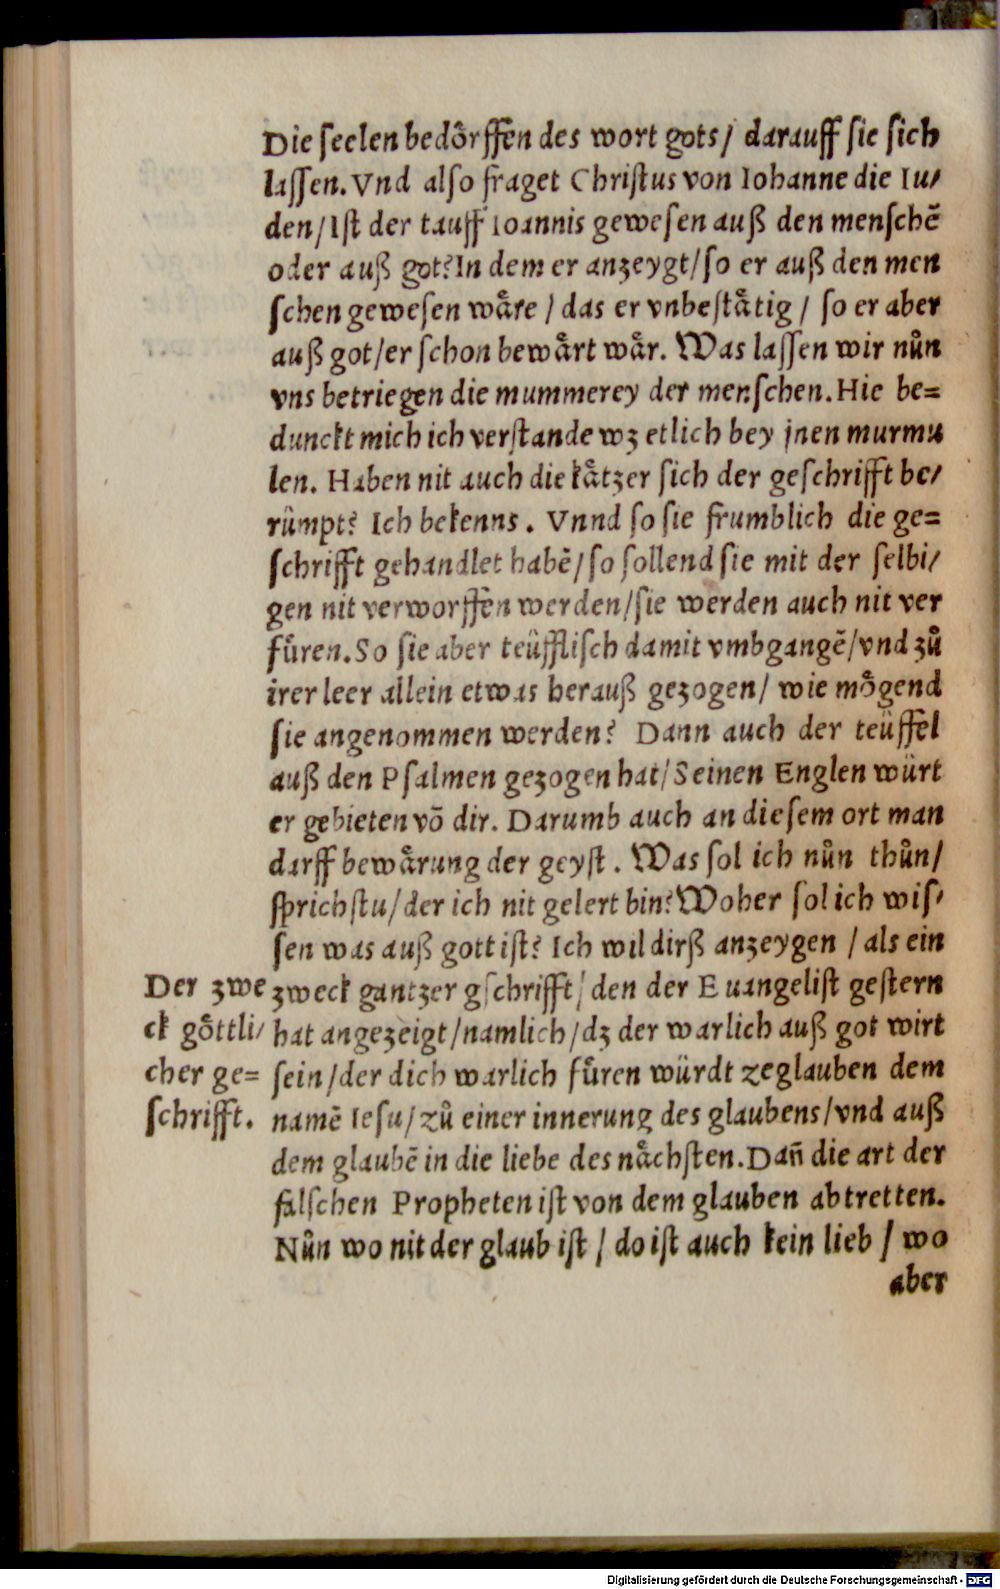 Die ſeelen bedoͤrffen des wort gots/ darauff ſie ſich
laſſen. Vnd alſo fraget Chriſtus von Iohanne die Iu/
den/ Iſt der tauff Ioannis geweſen auß den menſchē
oder auß got? In dem er anzeygt/ ſo er auß den men
ſchen geweſen waͤre / das er vnbeſtaͤtig / ſo er aber
auß got/ er ſchon bewaͤrt waͤr. Was laſſen wir nůn
vns betriegen die mummerey der menſchen. Hie be=
dunckt mich ich verſtande wz etlich bey jnen murmu
len. Haben nit auch die kaͤtzer ſich der geſchrifft be/
rümpt? Ich bekenns. Vnnd ſo ſie frumblich die ge=
ſchrifft gehandlet habē/ ſo ſollend ſie mit der ſelbi/
gen nit verworffen werden/ ſie werden auch nit ver
fuͤren. So ſie aber teüffliſch damit vmbgangē/ vnd zů
irer leer allein etwas herauß gezogen/ wie moͤgend
ſie angenommen werden? Dann auch der teüffel
auß den Pſalmen gezogen hat/ Seinen Englen würt
er gebieten vō dir. Darumb auch an dieſem ort man
darff bewaͤrung der geyſt. Was ſol ich nůn thůn/
ſprichſtu/ der ich nit gelert bin? Woher ſol ich wiſ/
ſen was auß gott iſt? Ich wil dirß anzeygen / als ein
zweck gantzer gſchrifft/ den der Euangeliſt geſtern
hat angezeigt/ namlich/ dz der warlich auß got wirt
ſein/ der dich warlich fuͤren würdt zeglauben dem
namē Ieſu/ zů einer innerung des glaubens/ vnd auß
dem glaubē in die liebe des naͤchſten. Dañ die art der
falſchen Propheten iſt von dem glauben abtretten.
Nůn wo nit der glaub iſt / do iſt auch kein lieb / wo
aber
Der zwe
ck goͤttli/
cher ge=
ſchrifft.
Digitalisierung gefördert durch die Deutsche Forschungsgemeinschaft - DFG